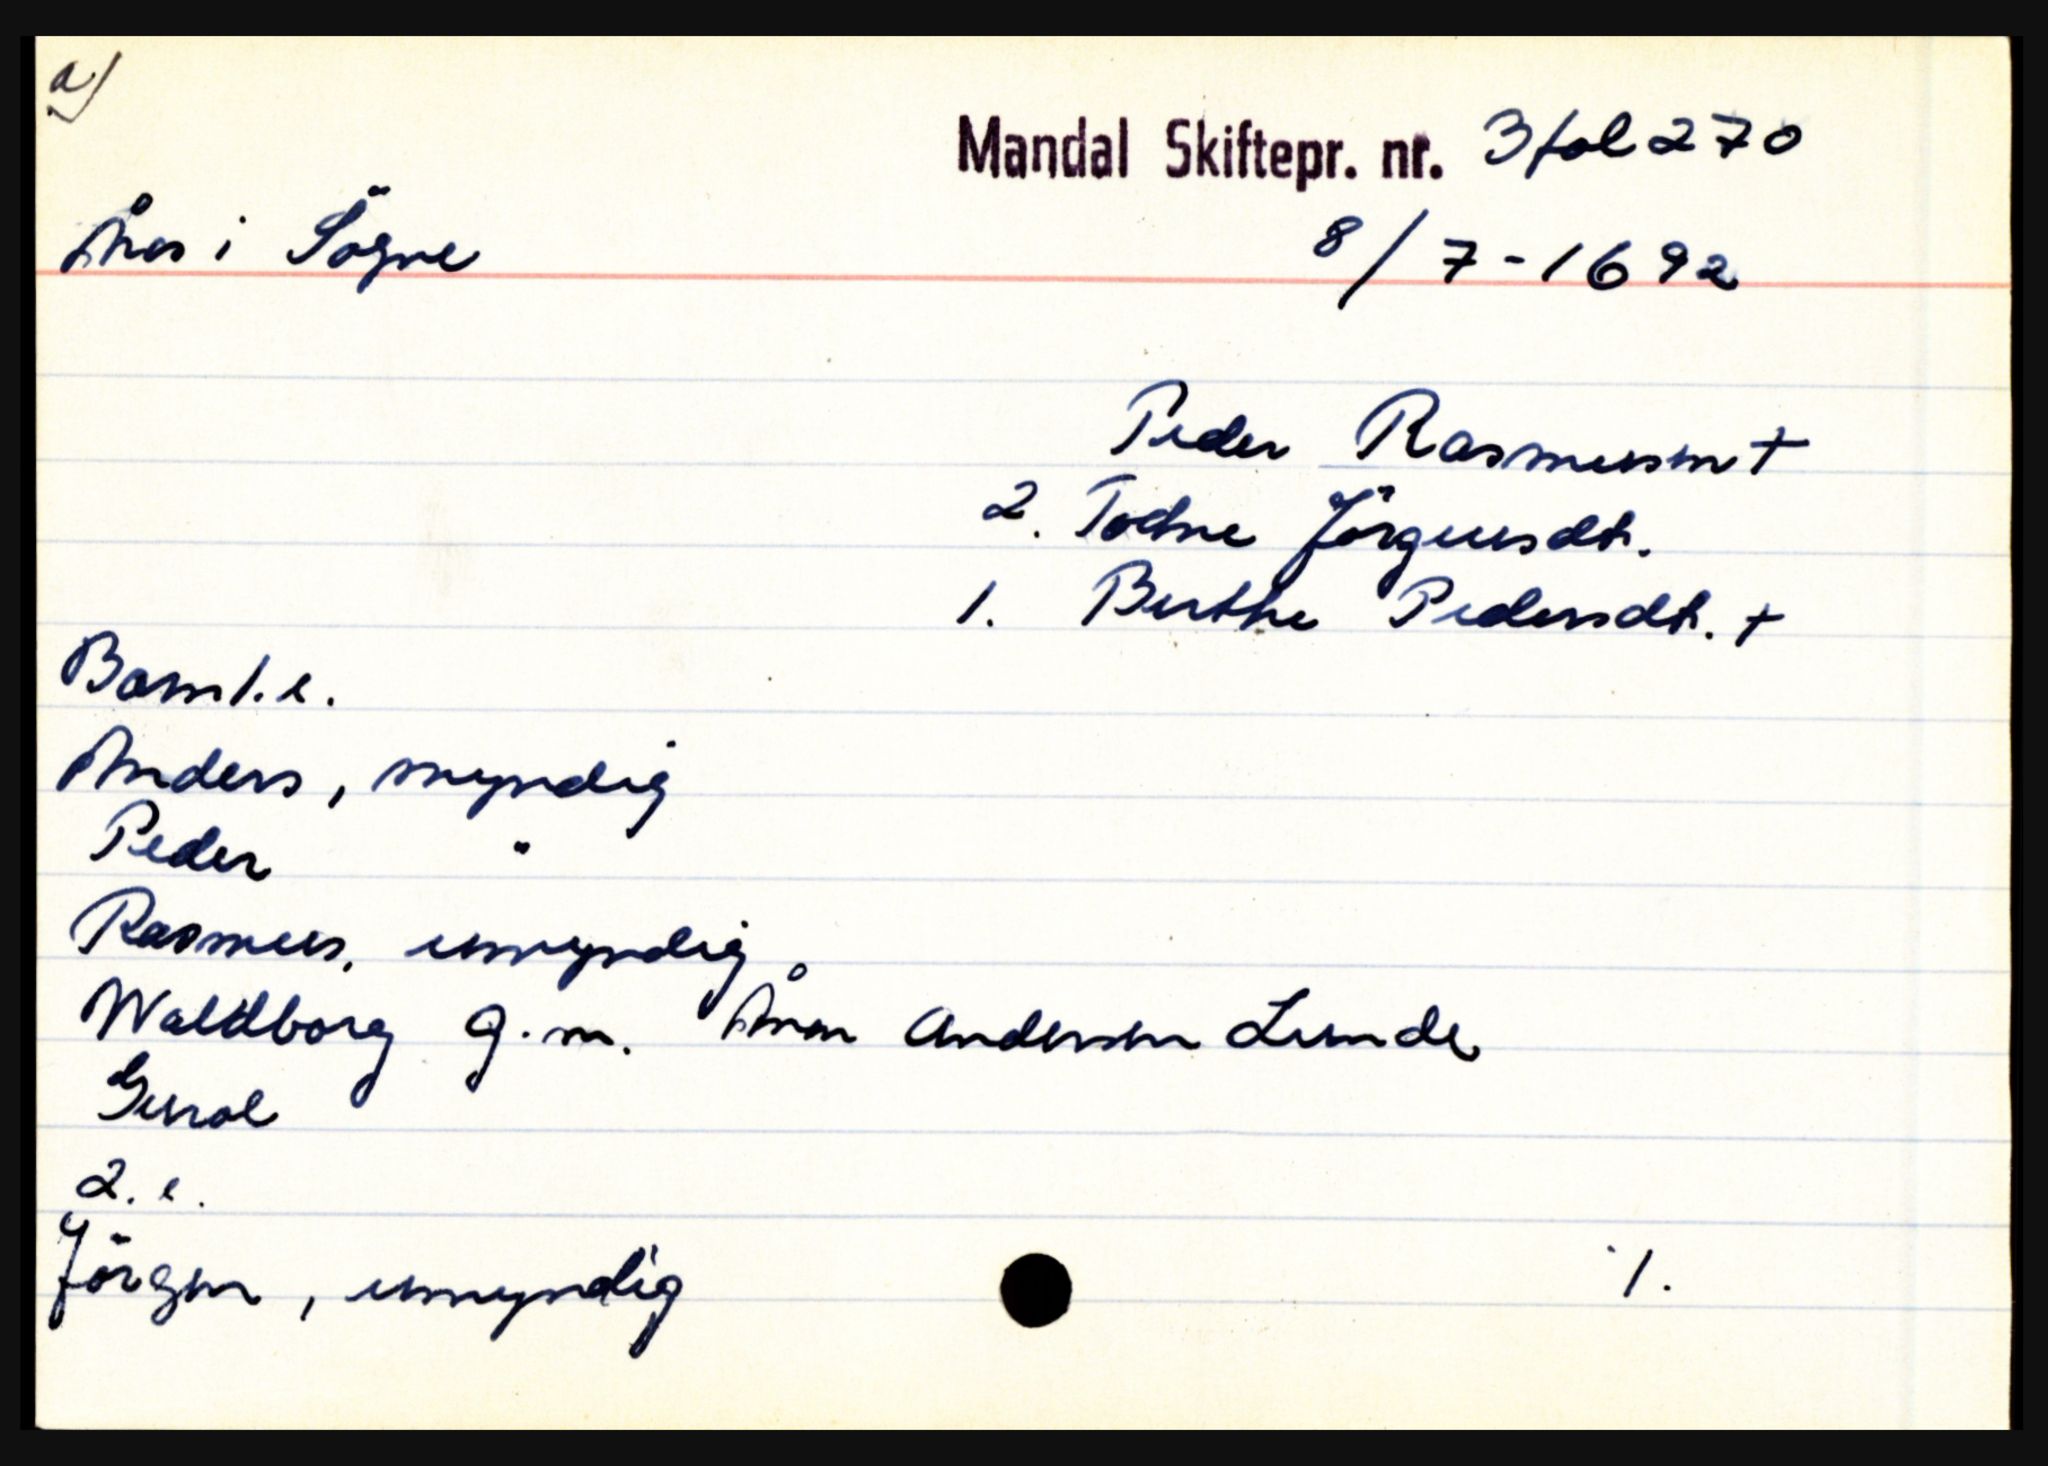 a)
Mandal Skiftepr. nr. 3 fol 270
Åros i Sögne 8/7-1692
Peder Rasmussen +
2. Todne Jörgensdtr.
1. Berthe Pedersdtr. +
Barn 1. e.
Anders, myndig
Peder "
Rasmus, umyndig
Waldborg g. m. Ånen Andersen Lunde
Guroe
2. e.
Jörgen, umyndig 1.